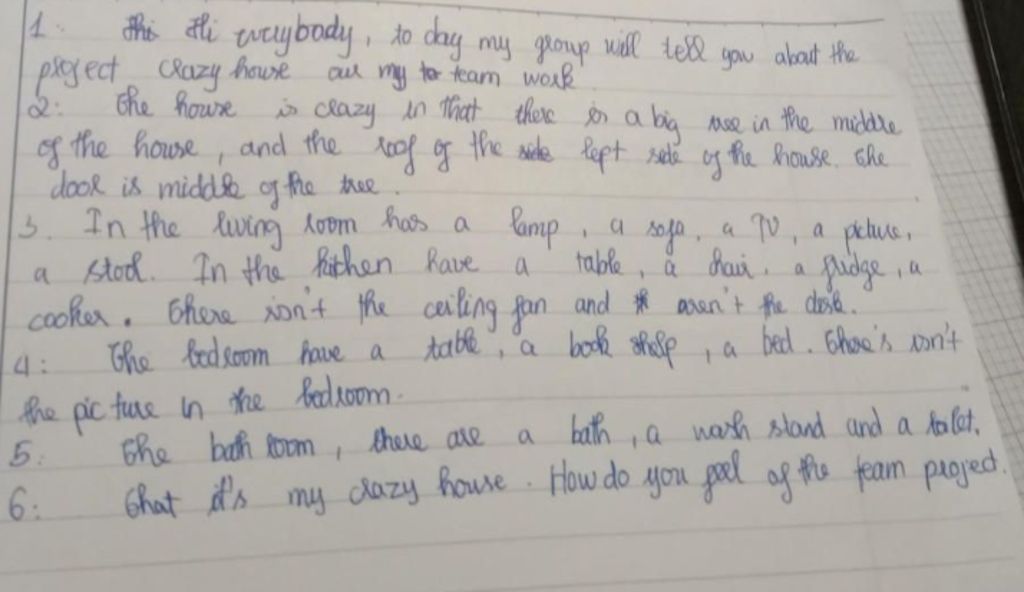 1. Hi everybody, to day my group will tell you about the
project crazy house our my team work
2: The house is crazy in that there is a big tree in the middle
of the house, and the roof of the left side of the house. The
door is middle of the tree.
3. In the living room has a lamp, a sofa, a TV, a picture,
a stool. In the kitchen have a table, a chair, a fridge, a
cooker. There isn't the ceiling fan and aren't the desk.
4: The bedroom have a table, a book shelf, a bed. There's isn't
the picture in the bedroom.
5: The bath room, there are a bath, a wash stand and a toilet.
6: That it's my crazy house. How do you feel of the team project.